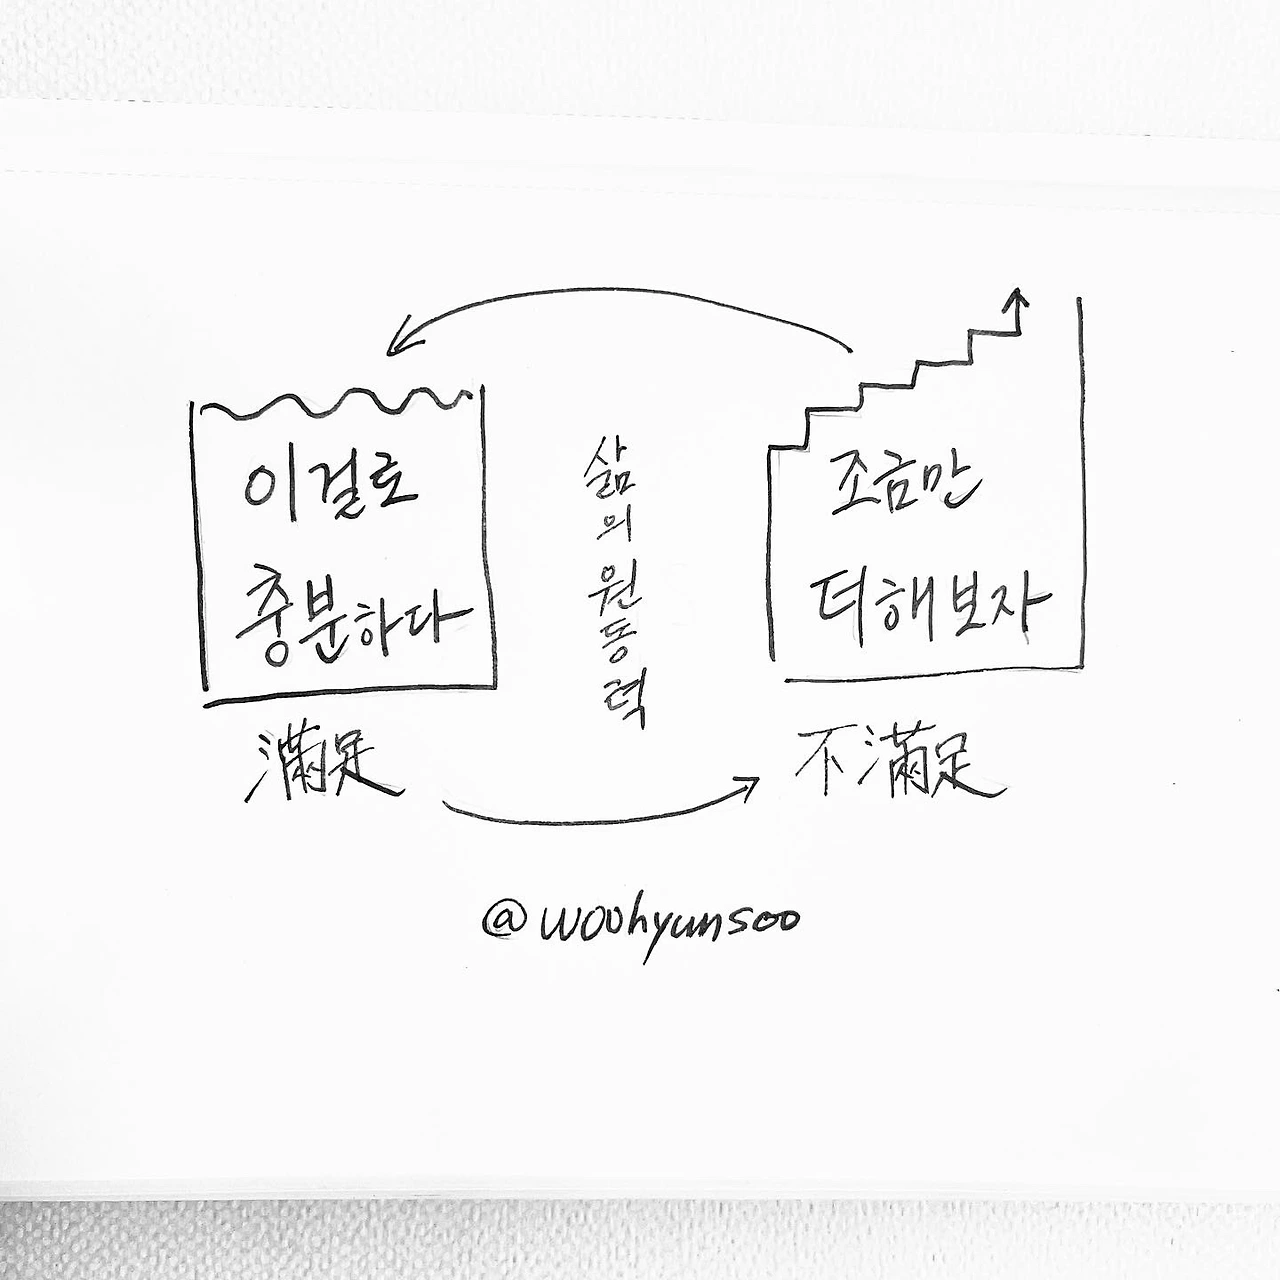 이걸로
충분하다
滿足
삶의원동력
조금만
더해보자
不滿足
@woohyunsoo